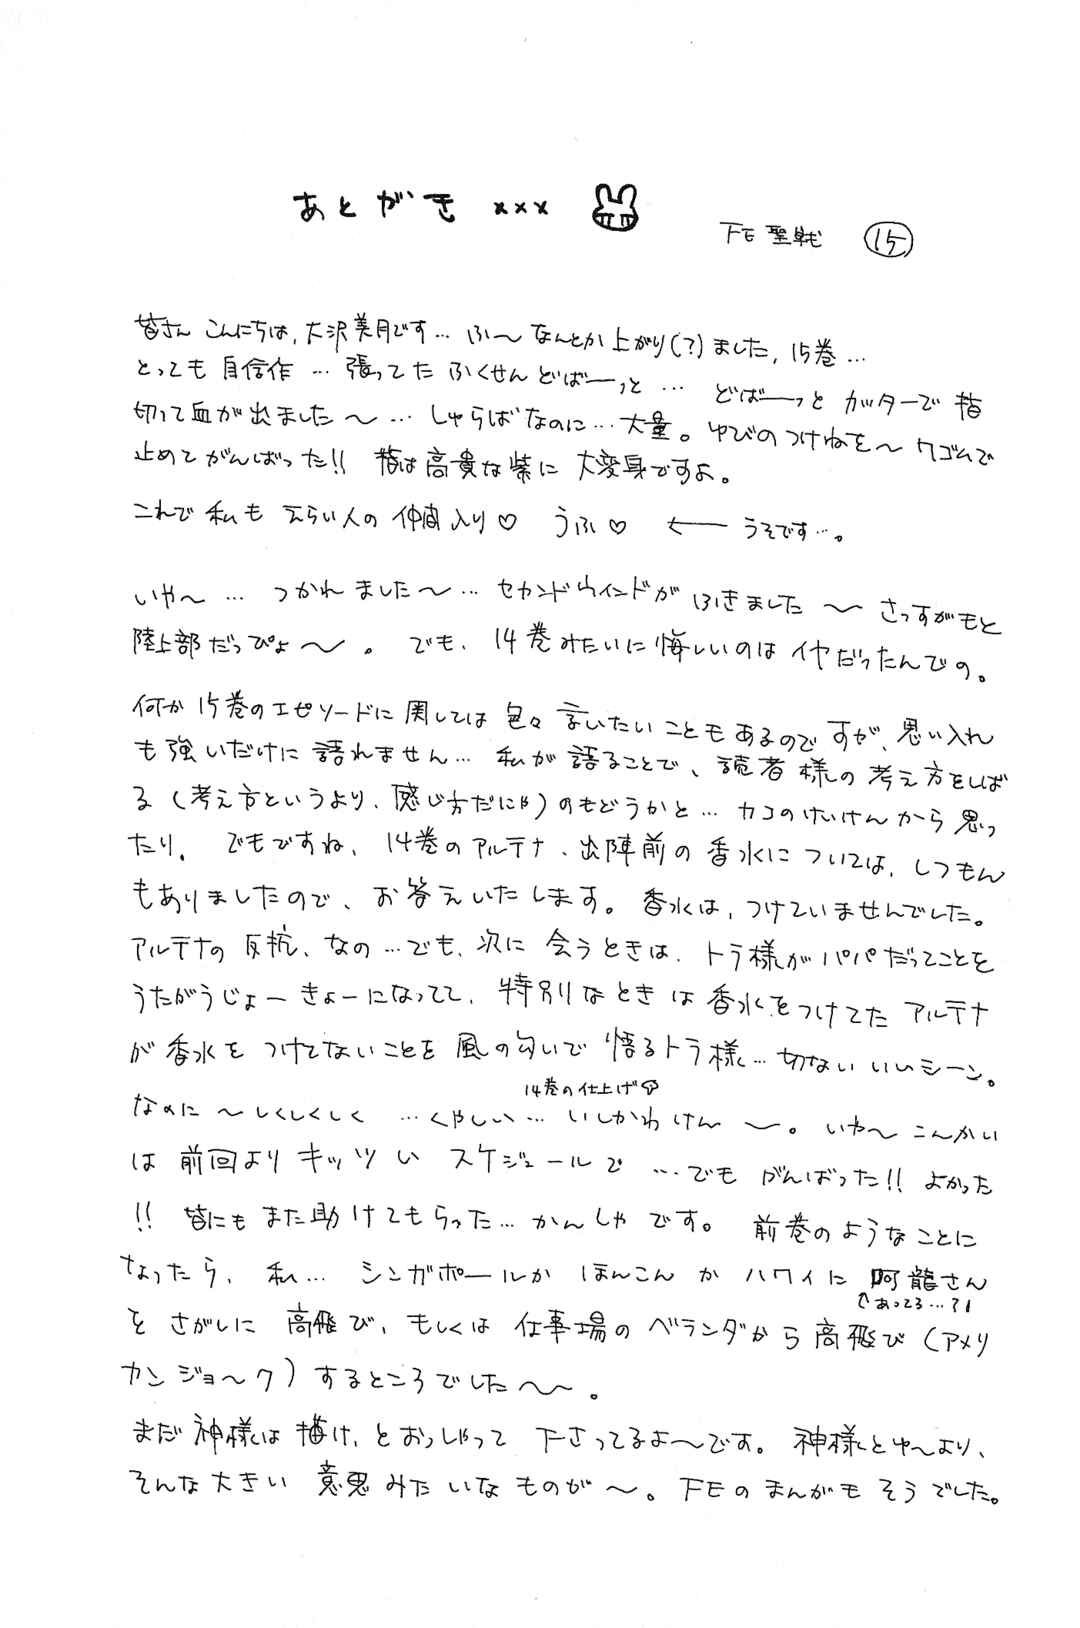 あとがき ×××
FE聖戦 ⑮
皆さん こんにちは, 大沢美月です… ふ〜 なんとか上がり(?)ました, 15巻…
とっても 自信作 … 張ってた ふくせん どばーっと … どばーっと カッターで 指
切って血が出ました〜… しゅらばなのに…大量。ゆびのつけねを〜ワゴムで
止めてがんばった!! 指は高貴な紫に 大変身ですよ。
これで 私も えらい人の 仲間入り♡ うふ♡ ← うそです…。
いや〜 … つかれました〜… セカンドウインドが ふきました 〜 さっすがもと
陸上部だっぴょ〜。 でも、14巻みたいに悔しいのは イヤだったんでの。
何か 15巻のエピソードに 関しては 色々 言いたいこともあるのですが、思い入れ
も強いだけに 語れません… 私が語ることで、読者様の考え方をしば
る (考え方というより、感じ方だにゃ) のもどうかと… カコのけいけんから思っ
たり。 でもですね、14巻のアルテナ、出陣前の香水については, しつもん
もありましたので、お答えいたします。香水は, つけていませんでした。
アルテナの反抗、なの…でも、次に会うときは、トラ様がパパだってことを
うたがうじょーきょーになってて、特別なときは香水をつけてた アルテナ
が香水をつけてないことを風の匂いで悟るトラ様…切ないいいシーン。
14巻の仕上げ
なのに〜しくしくしく …くやしい… いしかわけん 〜。いや〜こんかい
は 前回より キッツい スケジュールで …でも がんばった!! よかった
!! 皆にもまた助けてもらった… かんしゃです。 前巻のようなことに
なったら、私… シンガポールか ほんこん か ハワイに 阿龍さん
↑あってる…?!
を さがしに 高飛び、もしくは 仕事場の ベランダから高飛び (アメリ
カンジョ〜ク) するところでした〜〜。
まだ神様は 描け、とおっしゃって 下さってるよ〜です。神様とゆ〜より、
そんな大きい 意思みたいなものが〜。FEのまんがも そうでした。